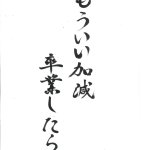 もういい加減
卒業したら